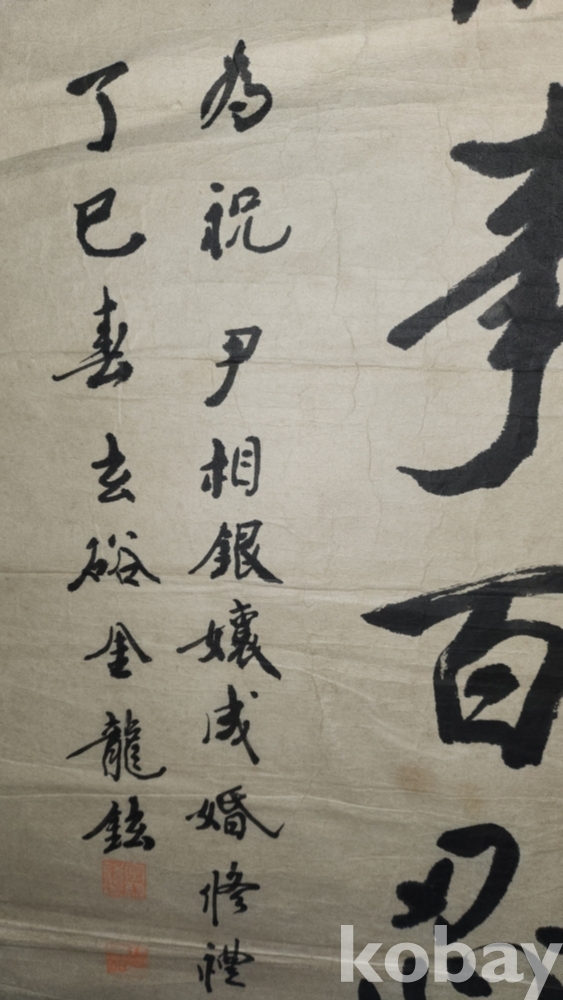 事百忍
為祝尹相銀孃成婚修禮
丁巳春玄硲金龍鉉
kobay